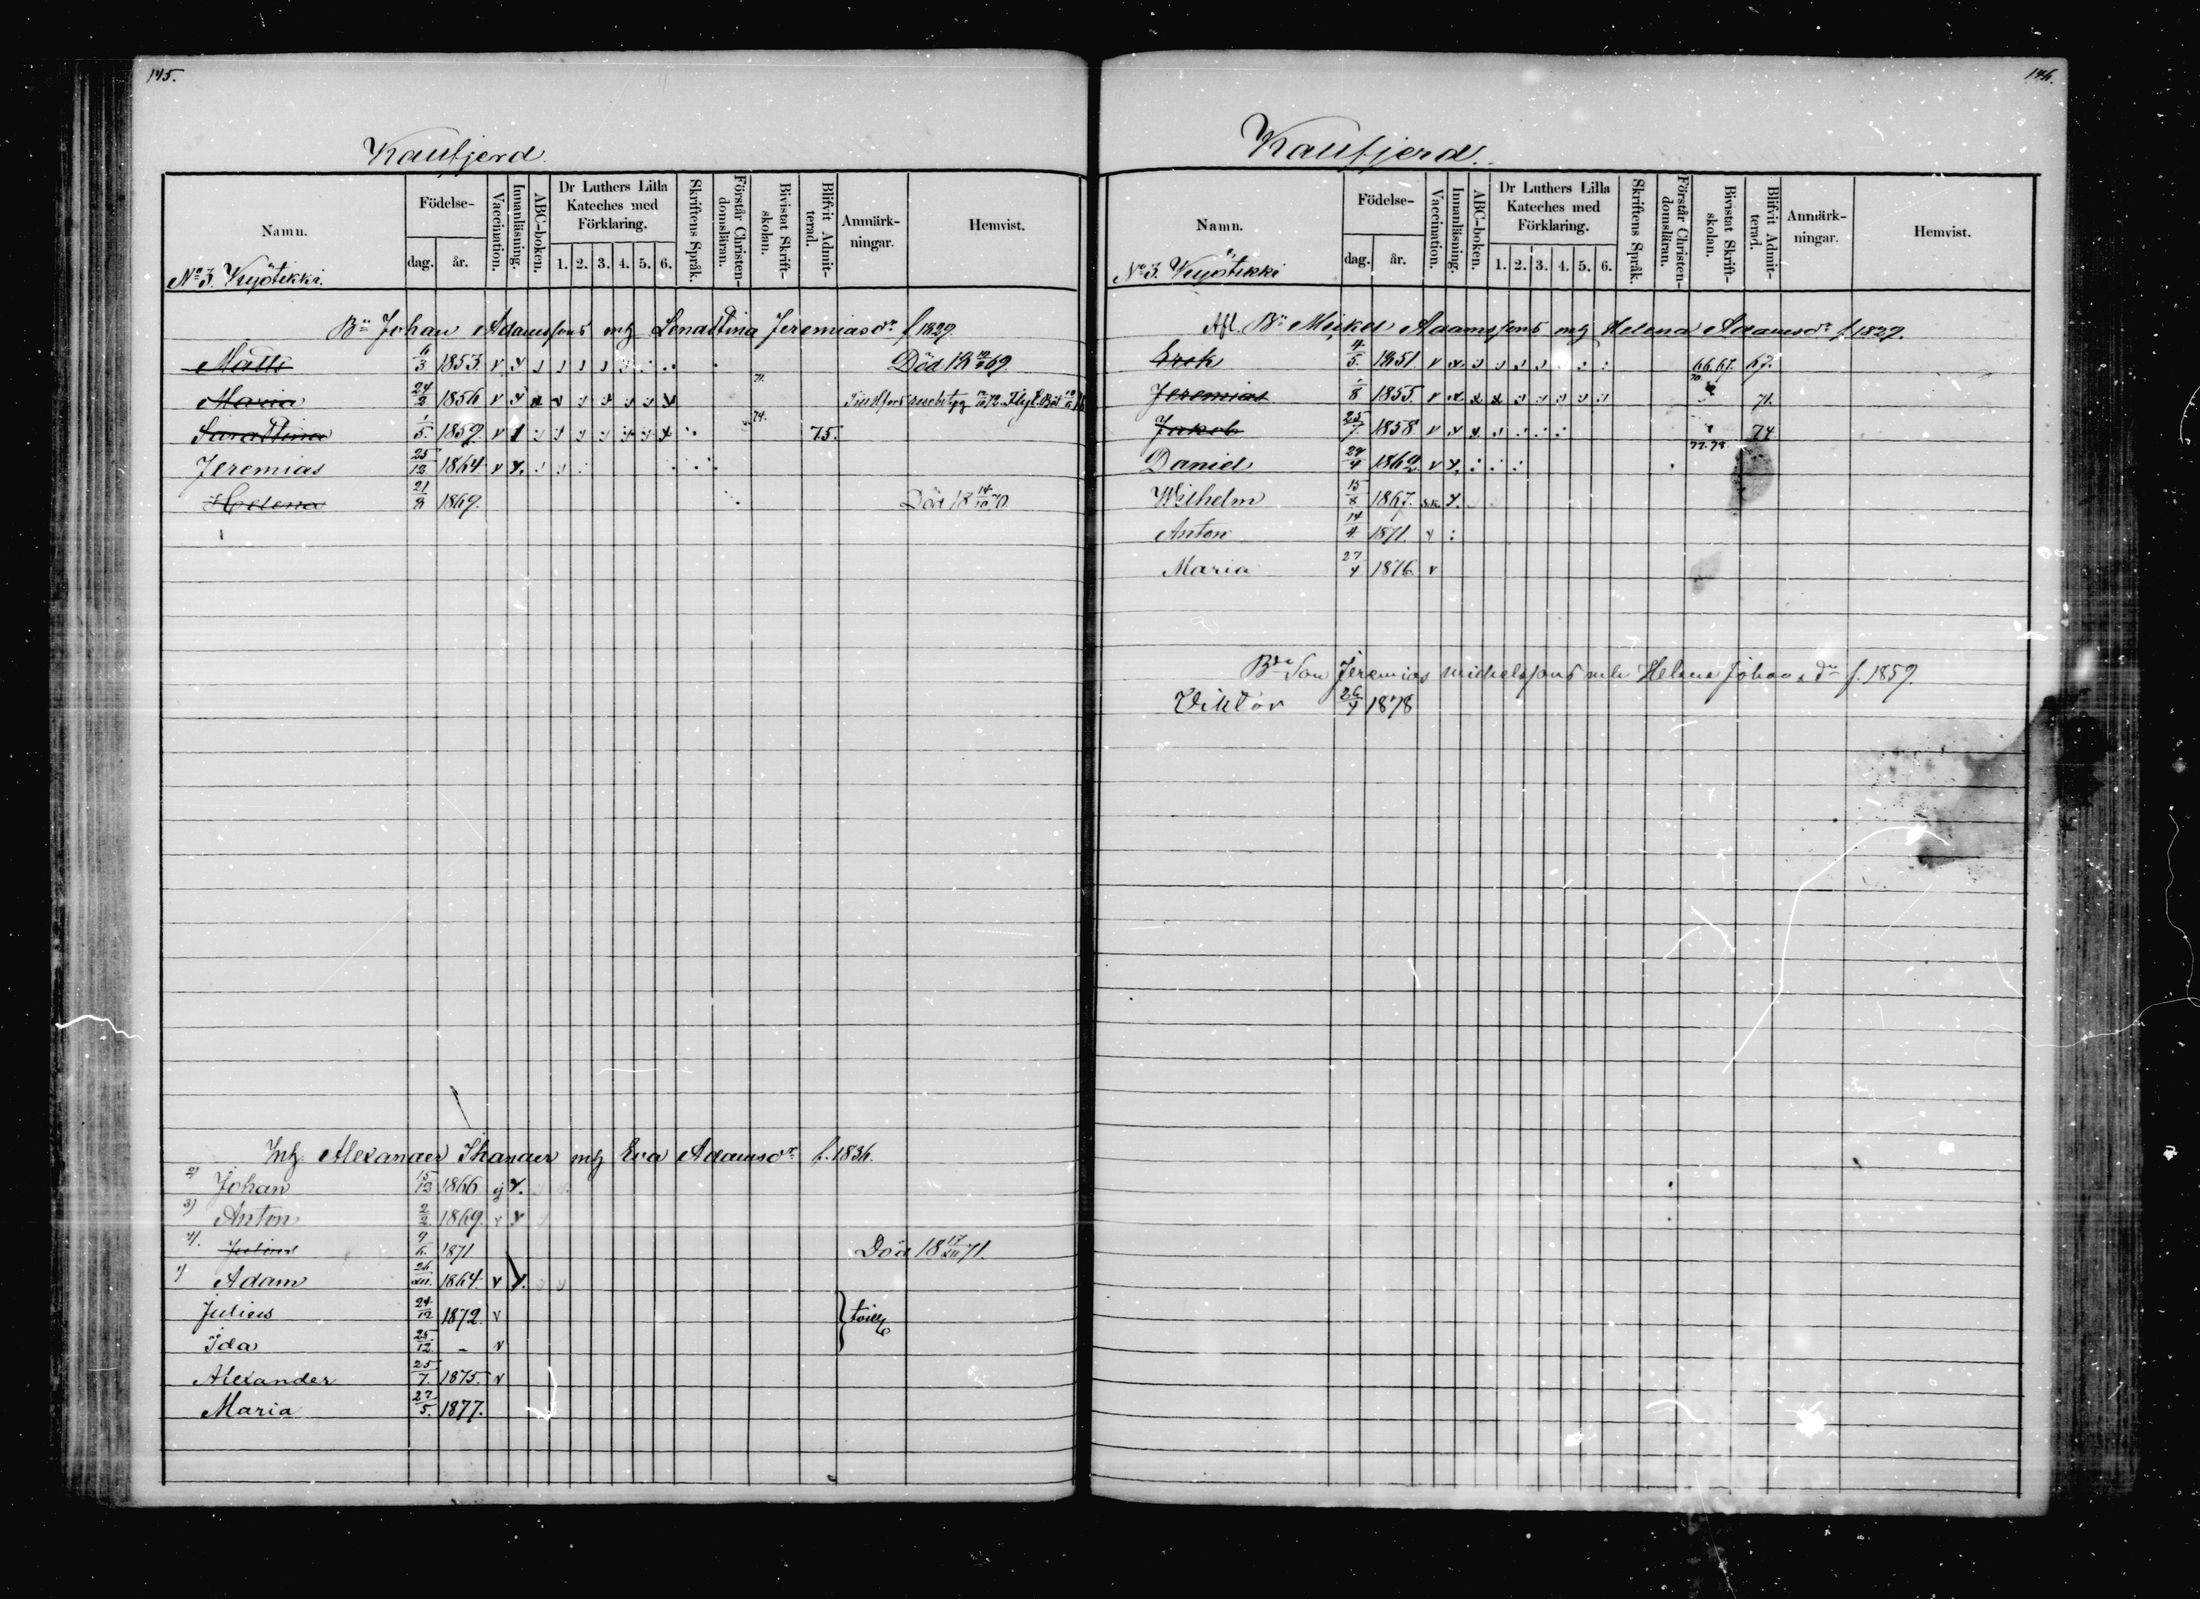 145.
Kaitfjerd.
Namn.
Födelse-
dag.
år.
Vaccination.
Innanläsning.
ABC-boken.
Dr Luthers Lilla
Kateches med
Förklaring.
1. 2. 3. 4. 5. 6.
Skriftens Språk.
Förstår Christen-
domsläran.
Bivistat Skrift-
skolan.
Blifvit Admit-
terad.
Anmärk-
ningar.
Hemvist.
No 3.
Bn Johan Adamssons mg Lenastina Jeremiasdr f 1829
Matts 6/3 1853. v Död 18 69.
Maria 24/2 1856 v 71.
Sarastina 1/5. 1859. v 74. 75.
Jeremias 25/12 1864 v
Helena 21/8 1869. Död 18 14/10 70.
Inh. Alexander Ikander mg Eva Adamsdr f. 1836.
2) Johan 15/12 1866 ej
3) Anton 2/2 1869. v
4). 9/6. 1871 Död 18 17/XII 71.
1) Adam 26/XII. 1864 v
Julius 24/12 1872. v
Ida 25/12 - v
Alexander 25/7. 1875. v
Maria 27/5. 1877.
146.
Kaitfjerd.
Namn.
Födelse-
dag.
år.
Vaccination.
Innanläsning.
ABC-boken.
Dr Luthers Lilla
Kateches med
Förklaring.
1. 2. 3. 4. 5. 6.
Skriftens Språk.
Förstår Christen-
domsläran.
Bivistat Skrift-
skolan.
Blifvit Admit-
terad.
Anmärk-
ningar.
Hemvist.
No 3.
Afl. Bn Mickel Adamssons mg Helena Adamsdr f. 1829.
Erek 4/5. 1851. v 66.67. 67.
Jeremias 1/8 1855. v 70. 71.
Jakob 25/7. 1858 v 74
Daniel 24/4 1862 v 77.78
Wilhelm 15/8 1867.
Anton 14/4. 1871. v
Maria 27/4 1876 v
Bde Son Jeremias Michelssons Helena Johansdr f. 1859.
Viktor 26/4 1878